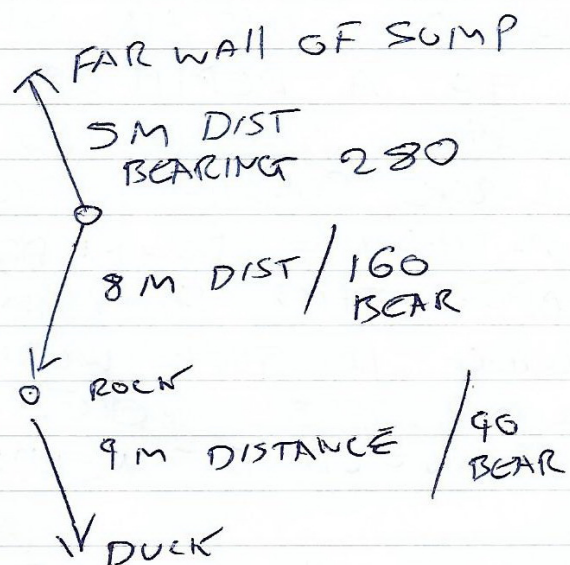 FAR WALL OF SUMP
5M DIST
BEARING 280
8M DIST / 160
BEAR
ROCK
9M DISTANCE / 90
BEAR
DUCK